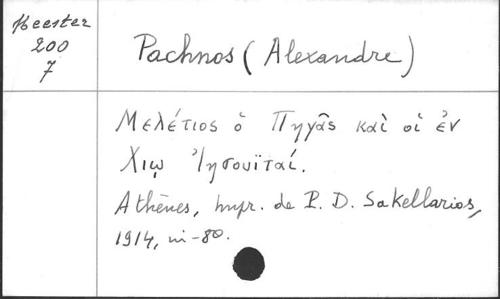 Meester
200
7
Pachnos (Alexandre)
Μελέτιος ὁ Πηγᾶς καὶ οἱ ἐν
Χίῳ Ἰησουϊταί.
Athènes, Impr. de P. D. Sakellarios,
1914, in-8º.